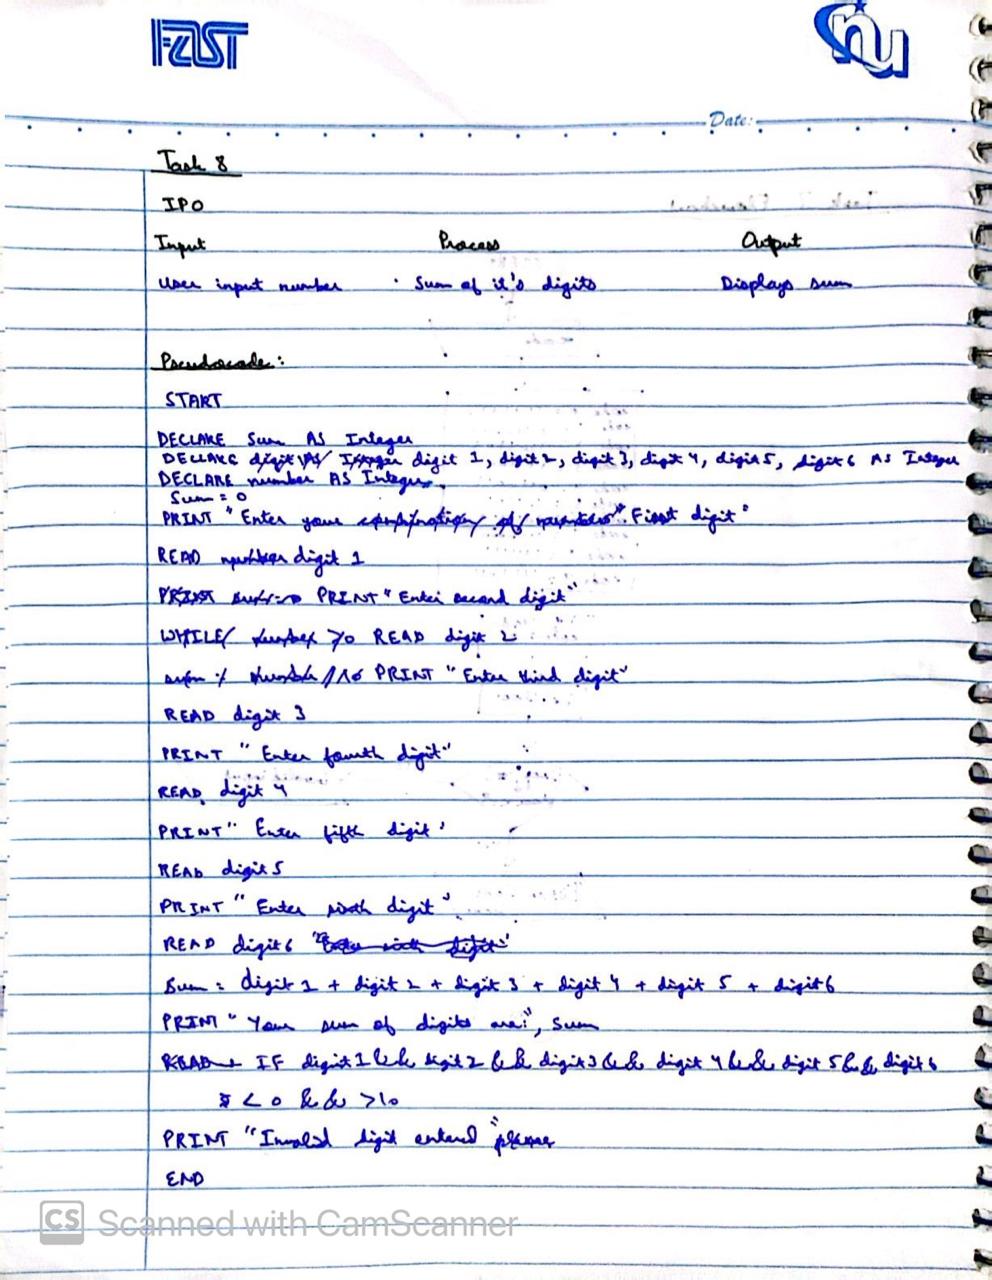 FAST
nu
Date:
Task 8
IPO
Input Process Output
User input number Sum of it's digits Displays sum
Pseudocode:
START
DECLARE Sum AS Integer
DECLARE digit AS Integer digit 1, digit 2, digit 3, digit 4, digit 5, digit 6 AS Integer
DECLARE number AS Integer.
Sum = 0
PRINT "Enter your combination of numbers". First digit"
READ number digit 1
PRINT PRINT "Enter second digit"
WHILE number >0 READ digit 2
sum % number //10 PRINT "Enter third digit"
READ digit 3
PRINT "Enter fourth digit"
READ digit 4
PRINT "Enter fifth digit'
READ digit 5
PRINT "Enter sixth digit"
READ digit 6 "Enter sixth digit"
Sum = digit 1 + digit 2 + digit 3 + digit 4 + digit 5 + digit 6
PRINT "Your sum of digits are:", Sum
READ IF digit 1 && digit 2 && digit 3 && digit 4 && digit 5 && digit 6
< 0 && >10
PRINT "Invalid digit entered" please
END
CS Scanned with CamScanner